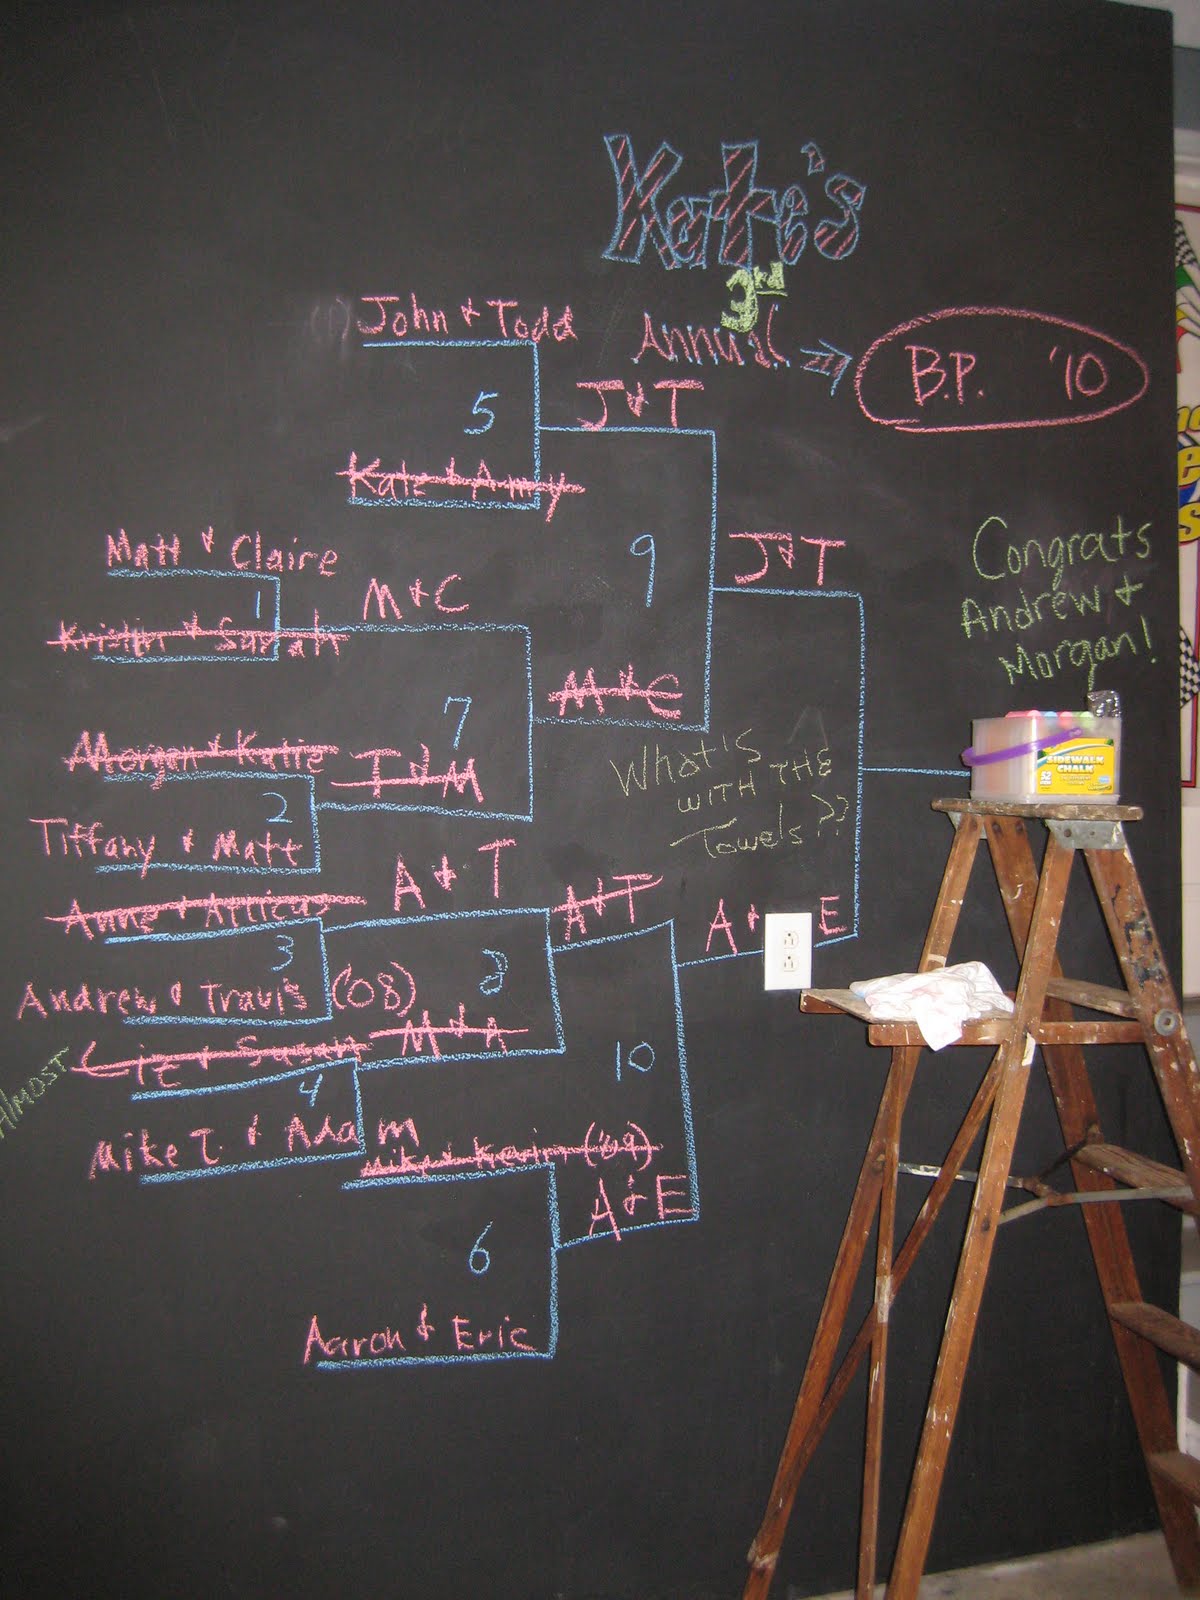 Kate's
3rd
Annual
B.P. '10
John & Todd
5
J & T
Kate & Amy
Matt & Claire
1
M & C
Kristin & Sarah
9
J & T
M & C
7
Morgan & Katie
T & M
2
Tiffany & Matt
Congrats
Andrew &
Morgan!
What's
WITH THE
Towels??
SIDEWALK
CHALK
52
A & T
Anne & Atticus
A & T
A & E
3
8
Andrew & Travis (08)
ALMOST
Liz & Susan
M & A
4
10
Mike T. & Adam
Mike & Kevin ('09)
A & E
6
Aaron & Eric